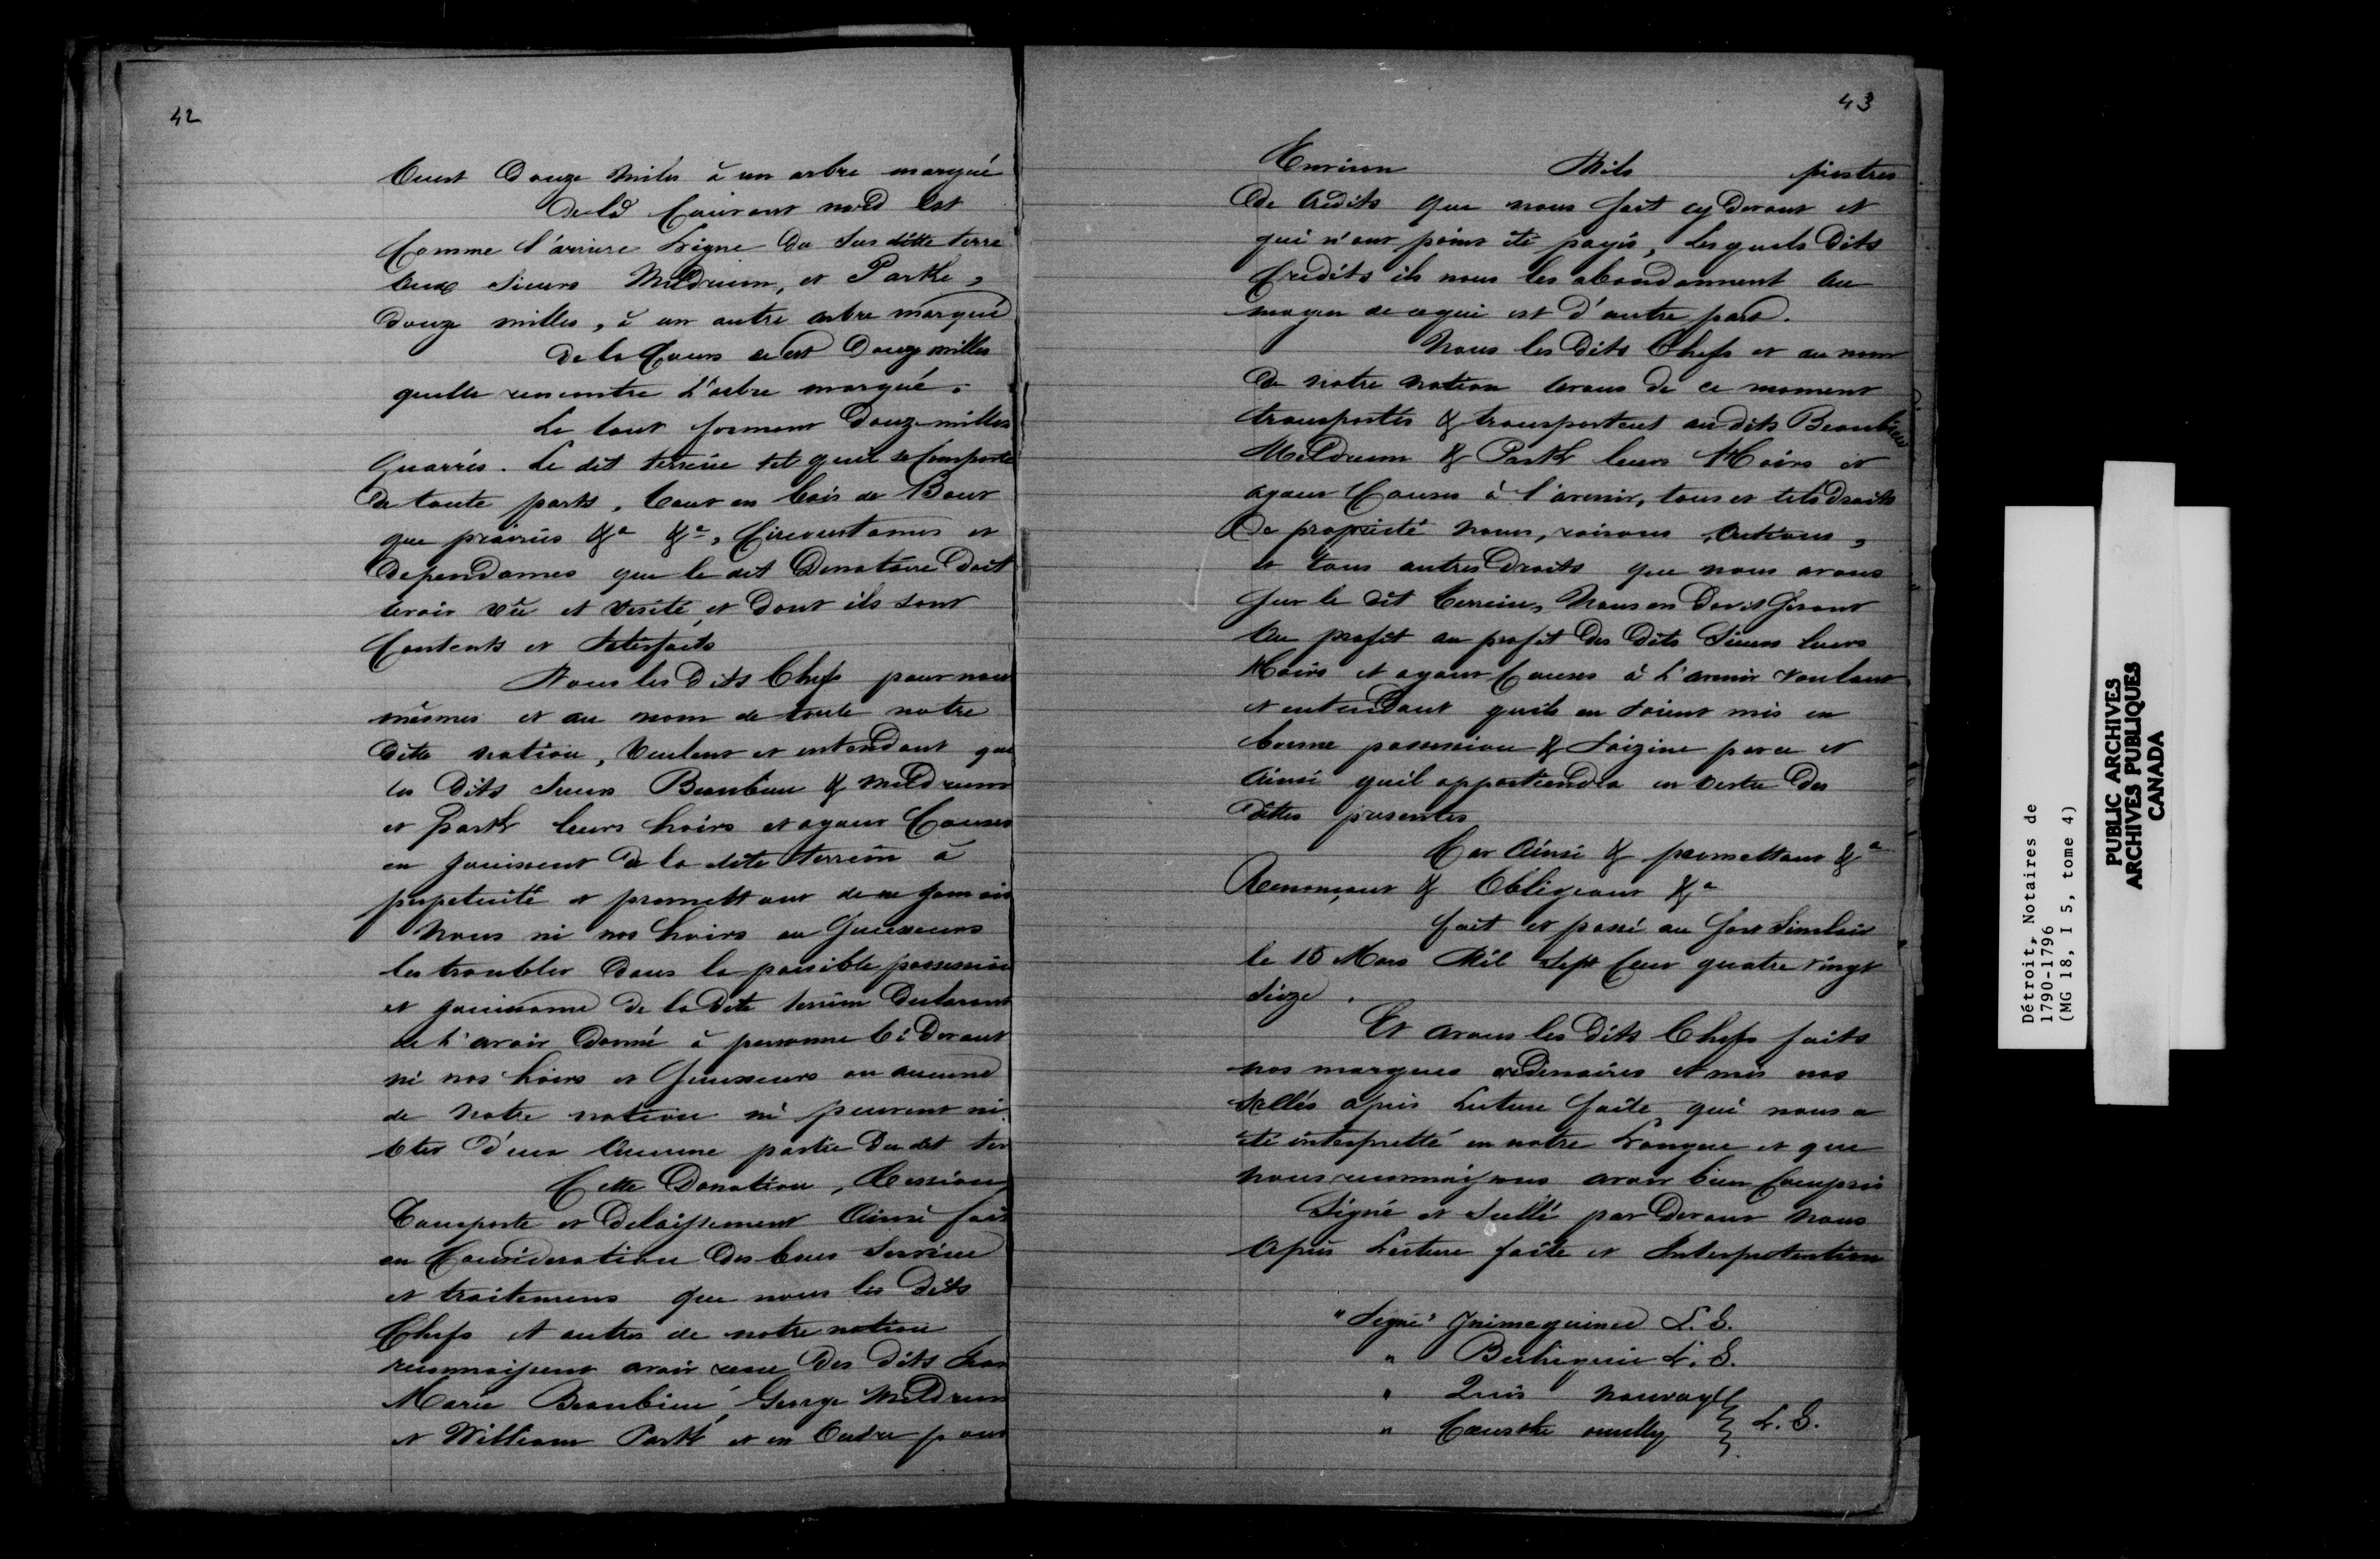 42
Ouest Douze Miles à un arbre marqué
De là Courant nord Est
Comme l'arriere Ligne du Sus ditte terre
Aux Sieurs Meldrum, et Parke,
Douze milles, à un autre arbre marqué
De la Cours ouest Douze milles
quelle rencontre L'arbre marqué.
Le tout formant Douze milles
Quarrés. Le dit terrein tel quil se Comporte
De toute parts, tout en bois de Bout
que prairies &a &a, Circonstances et
Dependances que le dit Donataire Doit
avoir vû et visité, et Dont ils sont
Contents et Satisfaits
Nous les Dits Chefs pour nous
mêmes et au nom de toute notre
Ditte nation, Veulent et entendant que
les Dits Sieurs Beaubien & Meldrum
et Park leurs hoirs et ayant Causes
en jouissent De la dite terrein à
perpetuité et promettant de ne jamais
Nous ni nos hoirs ou Successeurs
les troubler Dans la paisible possession
et jouissance De la Dite terrein Declarant
ne l'avoir Donné à personne Ci Devant
ni nos hoirs et Successeurs ou aucune
de Notre nation ni peuvent ni
ôter D'eux Aucune partie Du dit ter
Cette Donation, Cession
Transporte et Delaissement Ainsi fait
en Consideration Des bons Service
et traitemens que nous les Dits
Chefs et autres de notre nation
reconnaissent avoir reçue Des Dits Jean
Marie Beaubien, George Meldrum
et William Park et en Outre pour
43
Environ Mils piastres
De Credits que nous fait cy Devant et
qui n'ont point été payés, Lesquels Dits
Credits ils nous les abandonnent Au
moyen de ce qui est D'autre part.
Nous les Dits Chefs et au nom
De notre Nation Avons de ce moment
transportés & transportent au dits Beaubien
Meldrum & Park leurs Hoirs et
ayant Causes à l'avenir, tous et tels droits
De propriété Noms, raisons, Actions,
et tous autres Droits que nous avons
Sur le Dit Terrein, Nous en
Au profit au profit Des Dits Sieurs leurs
Hoirs et ayant Causes à L'avenir Voulant
et entendant quils en Soient mis en
bonne possession & Saizine par ce et
Ainsi quil appartiendra en vertu Des
Dittes presentes
Car Ainsi & promettant &a
Renonçant & Obligeant &a
fait et passé au fort Sinclair
le 18 Mars Mil Sept Cent quatre Vingt
Seize.
Et avons les Dits Chefs faits
nos marques ordinaires et mis nos
Sellés après Lecture faite, qui nous a
été interpretté en notre Langue et que
Nous reconnaissons avoir bien Compris
Signé et Sellé par Devant Nous
Après Lecture faite et Interpretation
"Signé" L. S.
" L. S.
" 
" L. S.
Détroit, Notaires de
1790-1796
(MG 18, I 5, tome 4)
PUBLIC ARCHIVES
ARCHIVES PUBLIQUES
CANADA